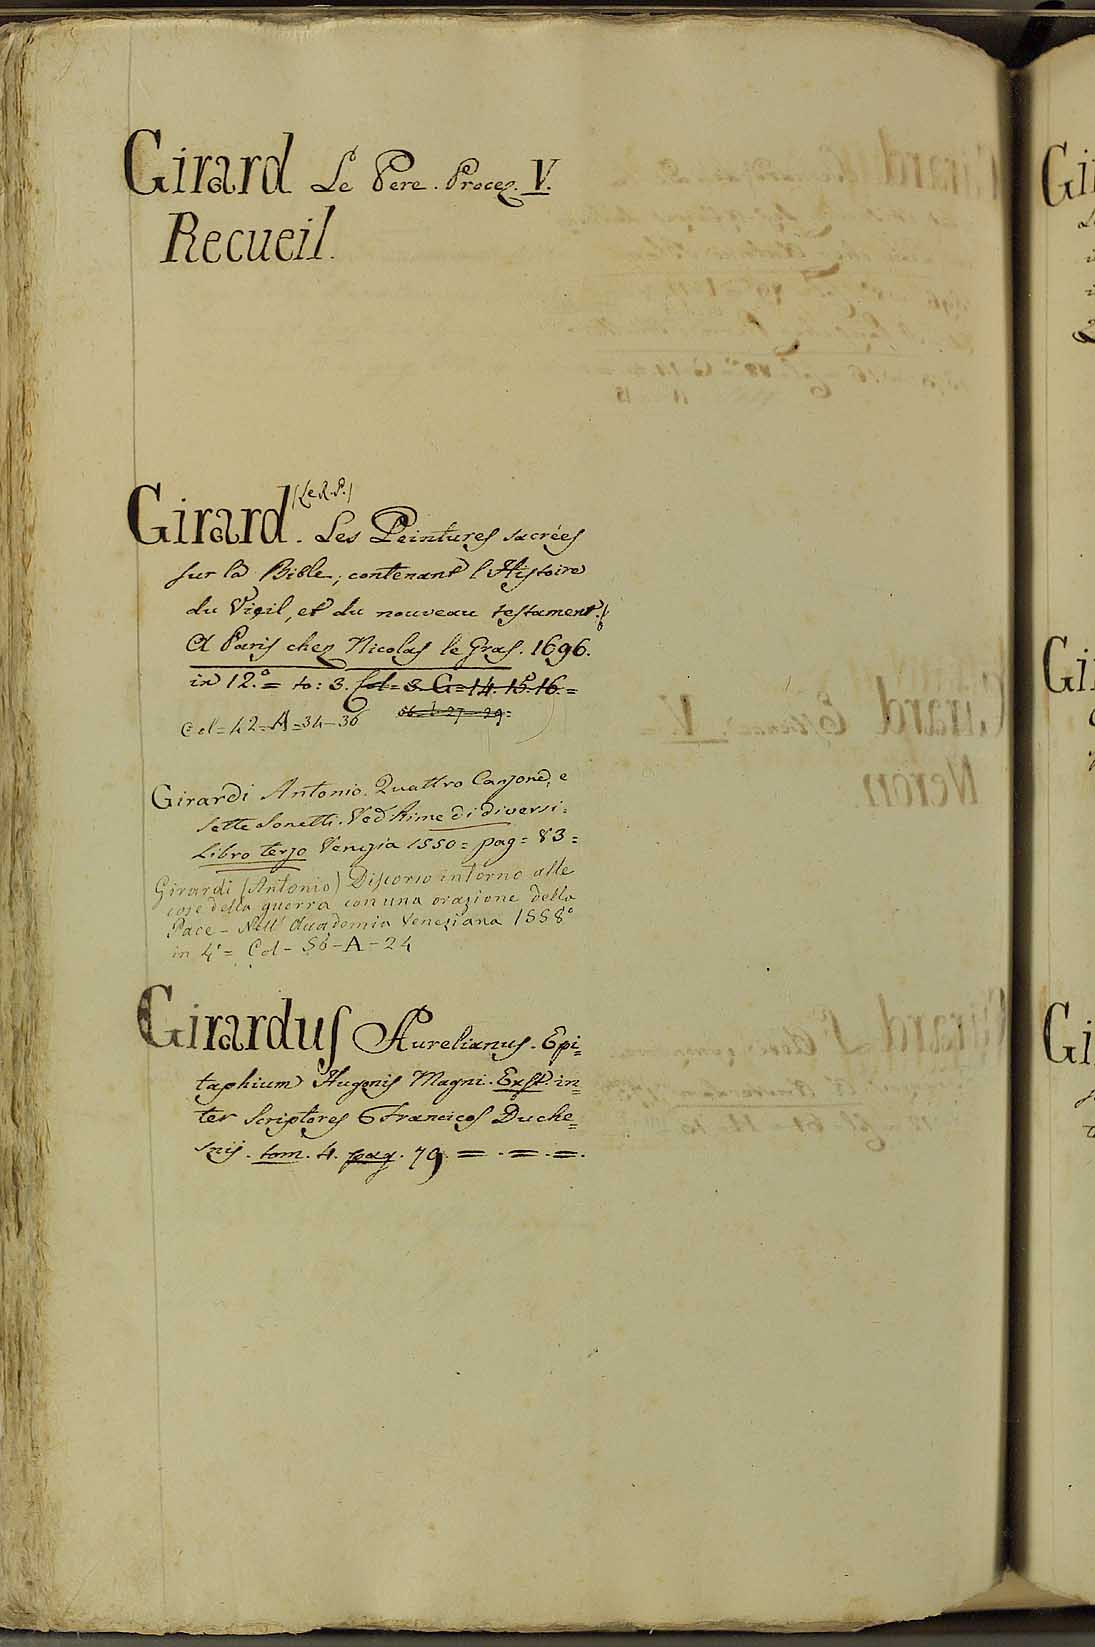 Girard Le Pere. Procez. V.
Recueil.
Girard (Le R. P.). Les Peintures sacrées
sur la Bible, contenant l'Histoire
du Vieil, et du nouveau testament.
A Paris chez Nicolas le Gras. 1696.
in 12.° = to: 3. Col = 3. G = 14. 15. 16. =
Col = 42 = A = 34 - 36
Girardi Antonio. Quattro Canzone, e
sette Sonetti. Ved Rime di diversi =
Libro terzo Venezia 1550 = pag = 83 =
Girardi (Antonio) Discorso intorno alle
cose della guerra con una orazione della
Pace - Nell' Academia Veneziana 1558°
in 4° = Col - 56 - A - 24
Girardus Aurelianus. Epi=
taphium Hugonis Magni. Exst. in=
ter Scriptores Francicos Duche=
snij. tom. 4. pag. 79. = . = . = .
Gir
Gir
Gi